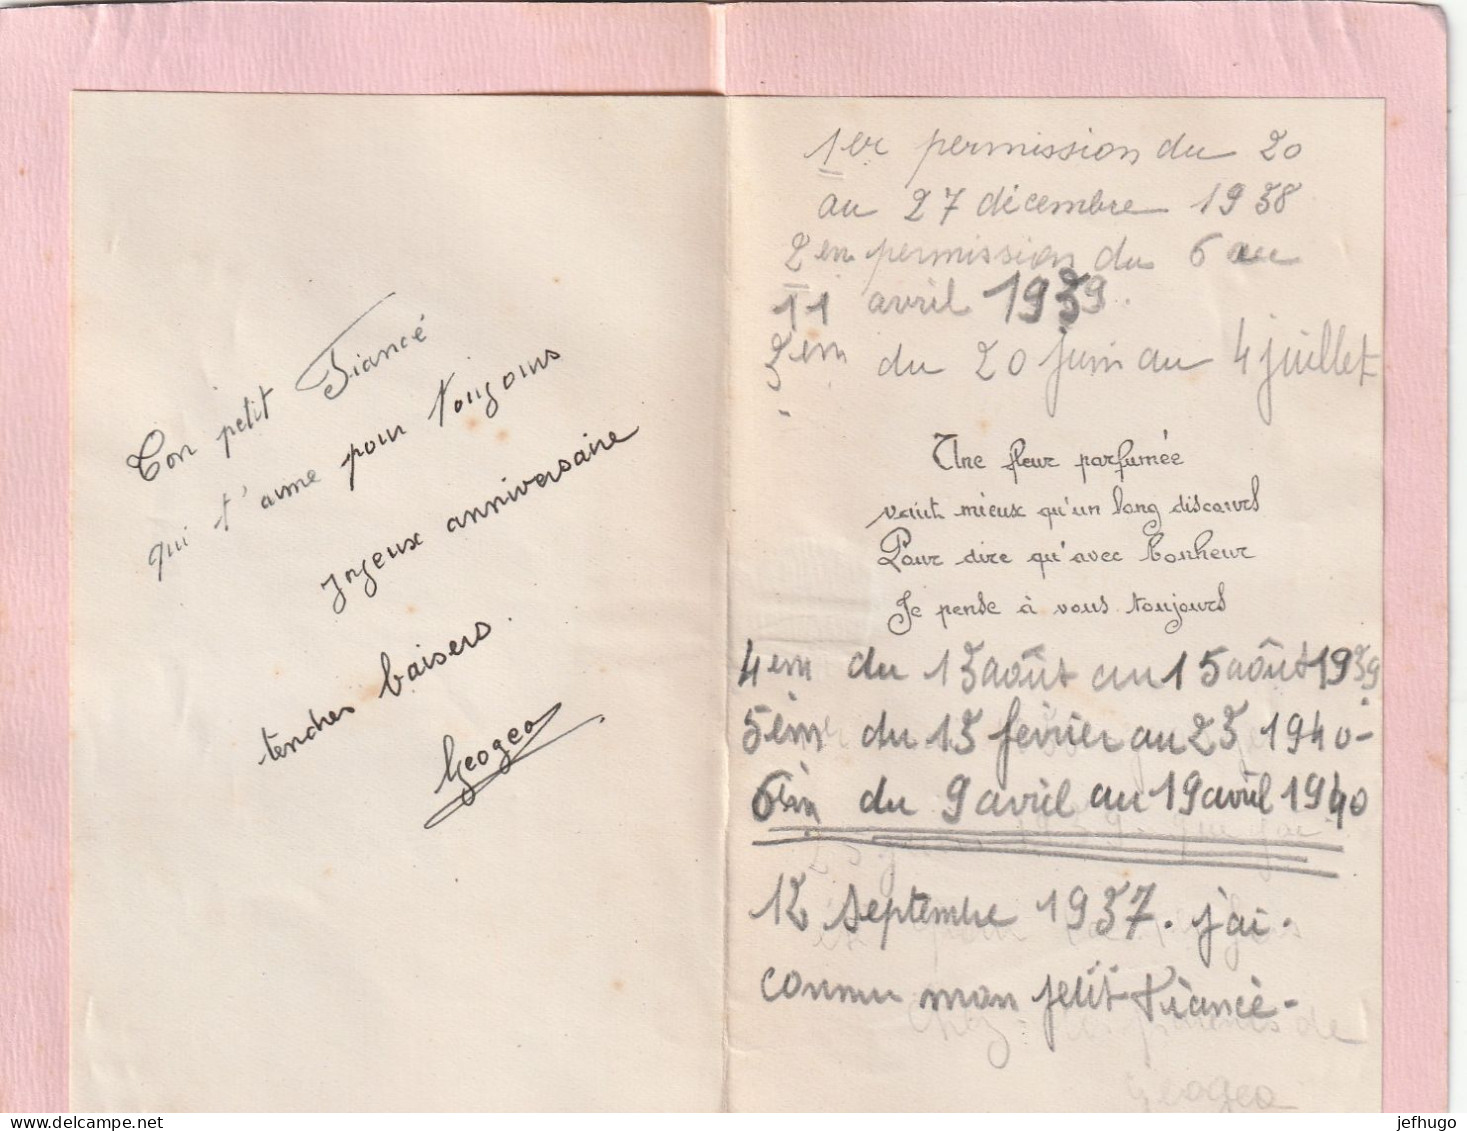 Ton petit Fiancé
qui t'aime pour Tougours
Joyeux anniversaire
tendres baisers.
Geogea
1er permission du 20
au 27 décembre 1938
2em permission du 6 au
11 avril 1939.
3em du 20 juin au 4 juillet
Une fleur parfumée
vaut mieux qu'un long discours
Pour dire qu'avec bonheur
Je pense à vous toujours
4em du 13 août au 15 août 1939
5èm du 13 fevrier au 23 1940-
6èm du 9 avril au 19 avril 1940
12 Septembre 1937. j'ai.
connu mon petit Fiancé-
chez les parents de
Geogea
delcampe.net
jefhugo